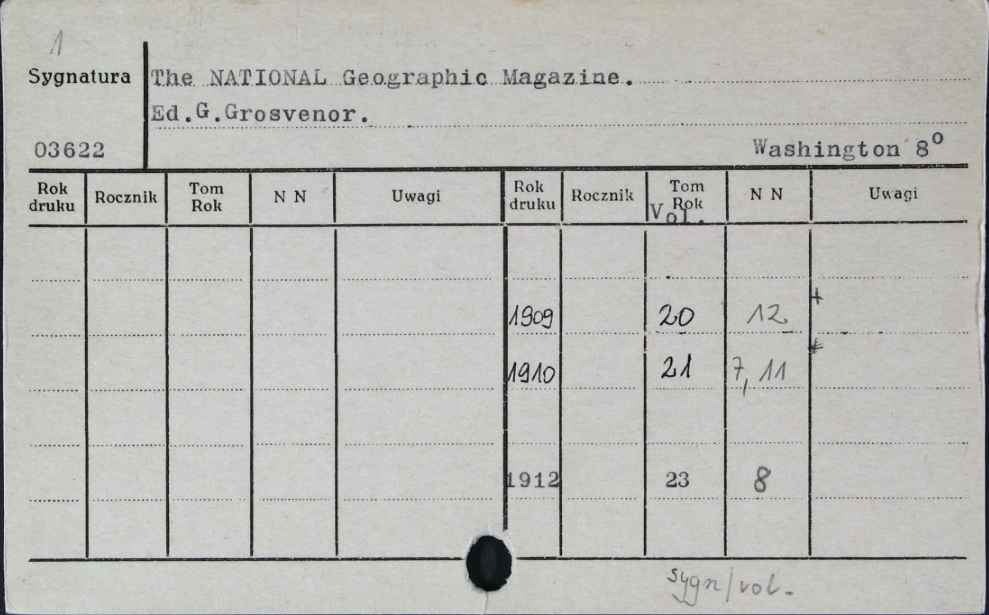 1
Sygnatura The NATIONAL Geographic Magazine.
Ed.G.Grosvenor.
03622 Washington 8⁰
Rok druku Rocznik Tom Rok N N Uwagi Rok druku Rocznik Tom Rok Vol. N N Uwagi
1909 20 12 +
1910 21 7, 11 +
1912 23 8
sygn/vol.